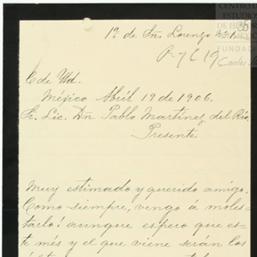 1ª de Sn. Lorenzo
C de Ud.
México Abril 19 de 1906.
Sr. Lic. Dn Pablo Martinez del Rio
Presente
Muy estimado y querido amigo.
Como siempre, vengo á moles-
tarlo! aunque espero que es-
te més y el que viene serán los